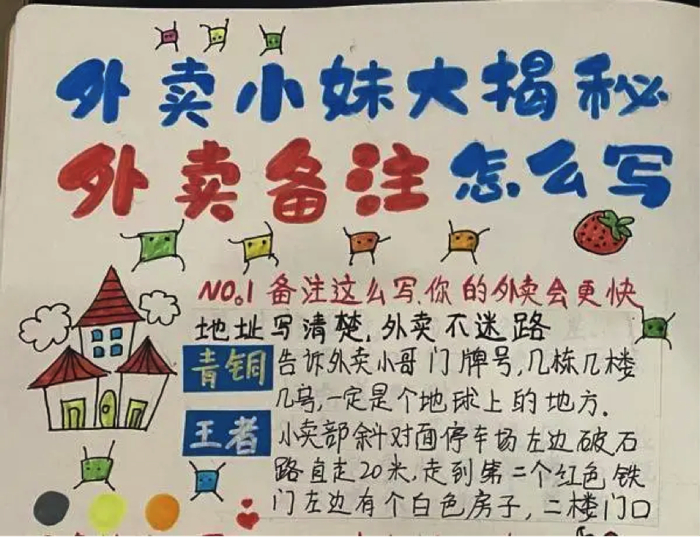 外卖小妹大揭秘
外卖备注怎么写
NO.1 备注这么写,你的外卖会更快
地址写清楚,外卖不迷路
青铜 告诉外卖小哥门牌号,几栋几楼
几号,一定是个地球上的地方.
王者 小卖部斜对面停车场左边破石
路直走20米,走到第二个红色铁
门左边有个白色房子,二楼门口